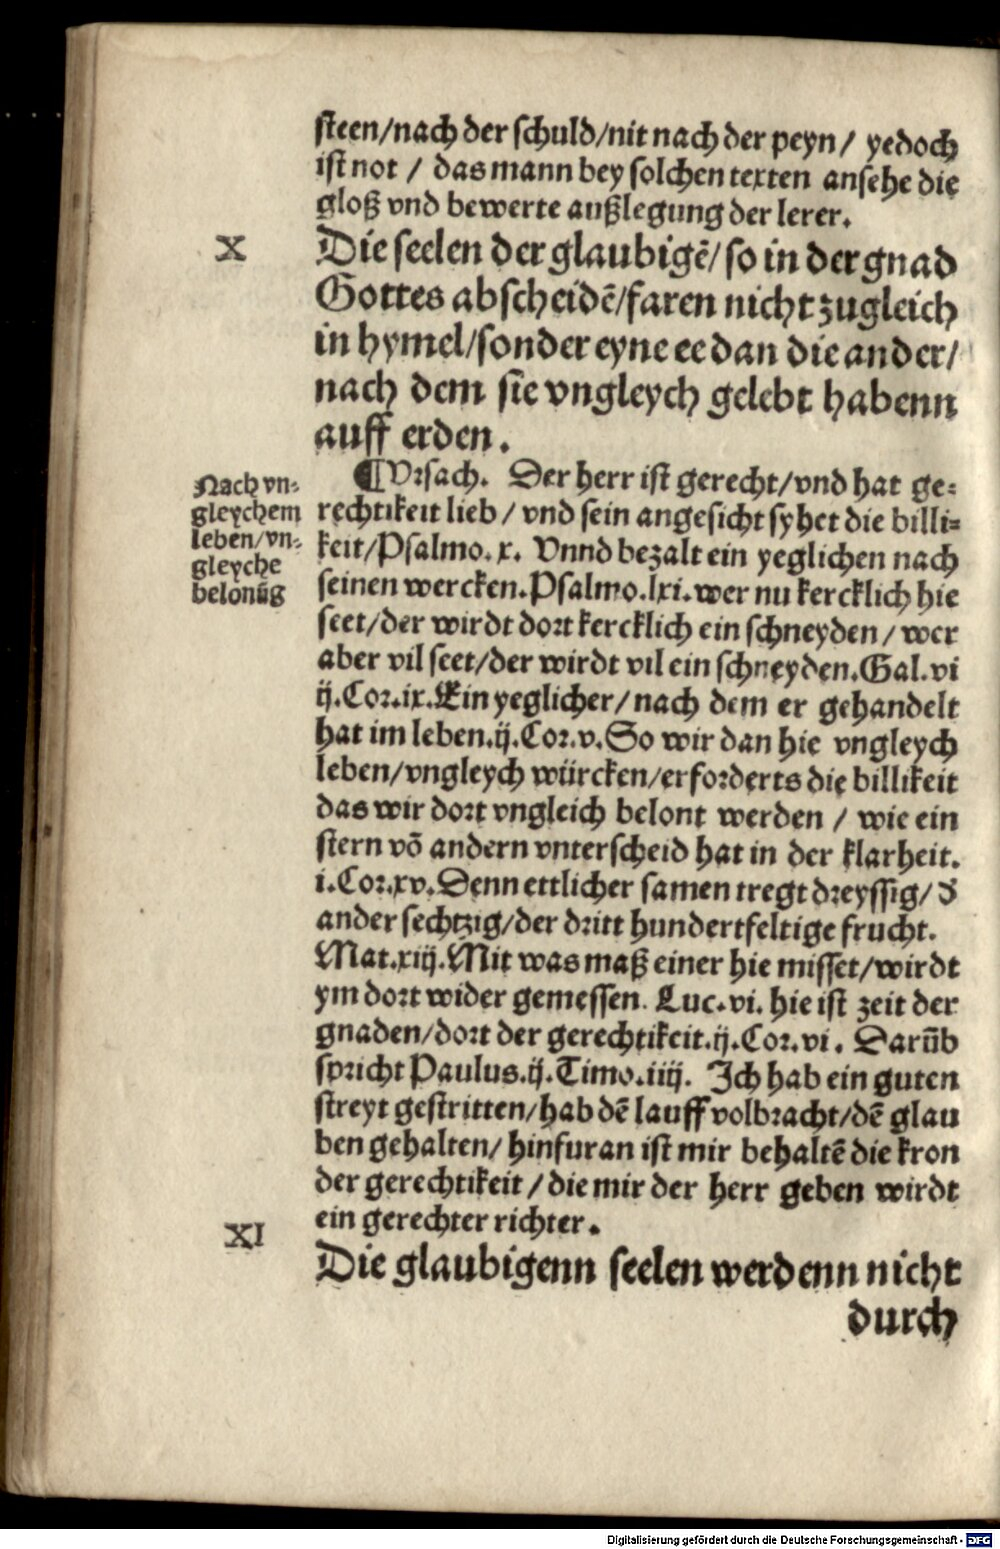 steen/nach der schuld/nit nach der peyn/ yedoch
ist not / das mann bey solchen texten ansehe die
gloß vnd bewerte außlegung der lerer.
X
Die seelen der glaubigē/ so in der gnad
Gottes abscheidē/faren nicht zugleich
in hymel/sonder eyne ee dan die ander/
nach dem sie vngleych gelebt habenn
auff erden.
Nach vn⸗
gleychem
leben/vn⸗
gleyche
belonūg
¶Vrsach. Der herr ist gerecht/vnd hat ge⸗
rechtikeit lieb / vnd sein angesicht syhet die billi⸗
keit/Psalmo.x. Vnnd bezalt ein yeglichen nach
seinen wercken.Psalmo.lxi.wer nu kercklich hie
seet/der wirdt dort kercklich ein schneyden/ wer
aber vil seet/der wirdt vil ein schneyden.Gal.vi
ij.Cor.ix.Ein yeglicher/nach dem er gehandelt
hat im leben.ij.Cor.v.So wir dan hie vngleych
leben/vngleych würcken/erforderts die billikeit
das wir dort vngleich belont werden / wie ein
stern vō andern vnterscheid hat in der klarheit.
i.Cor.xv.Denn ettlicher samen tregt dreyssig/ d̕
ander sechtzig/der dritt hundertfeltige frucht.
Mat.xiij.Mit was maß einer hie misset/wirdt
ym dort wider gemessen. Luc.vi. hie ist zeit der
gnaden/dort der gerechtikeit.ij.Cor.vi. Darūb
spricht Paulus.ij.Timo.iiij. Ich hab ein guten
streyt gestritten/hab dē lauff volbracht/dē glau
ben gehalten/ hinfuran ist mir behaltē die kron
der gerechtikeit / die mir der herr geben wirdt
ein gerechter richter.
XI
Die glaubigenn seelen werdenn nicht
durch
Digitalisierung gefördert durch die Deutsche Forschungsgemeinschaft - DFG